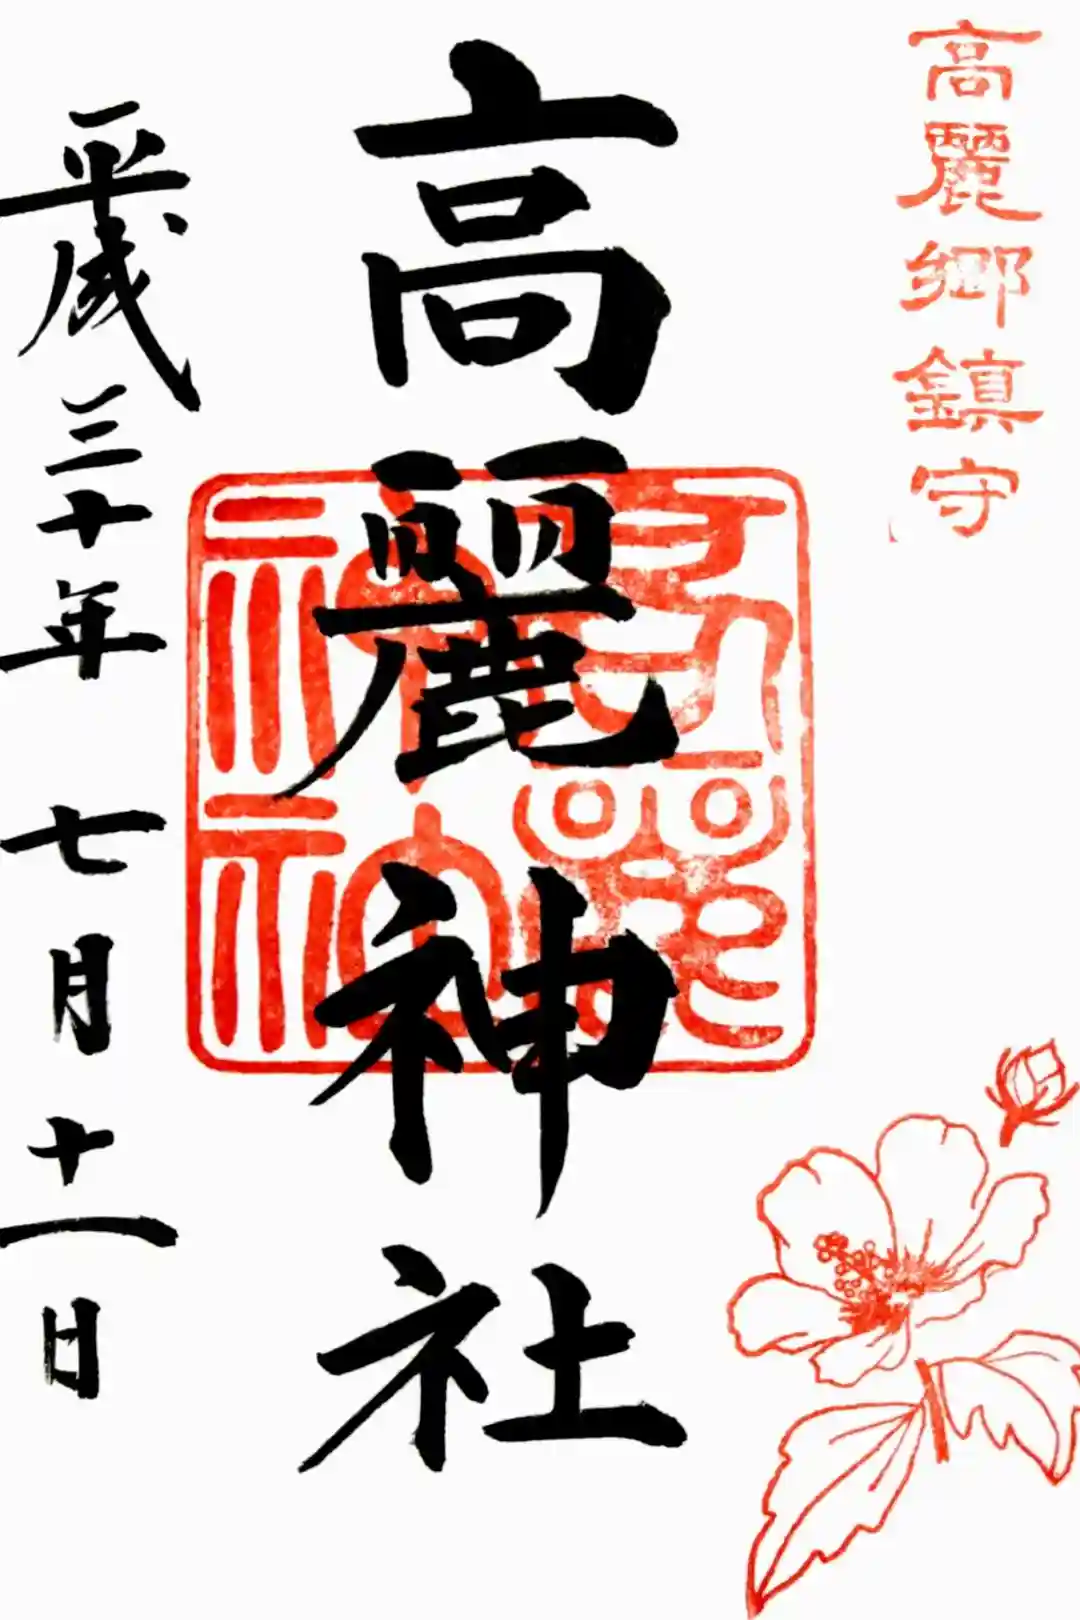 高麗郷鎮守
高麗神社
高麗神社
平成三十年 七月十一日